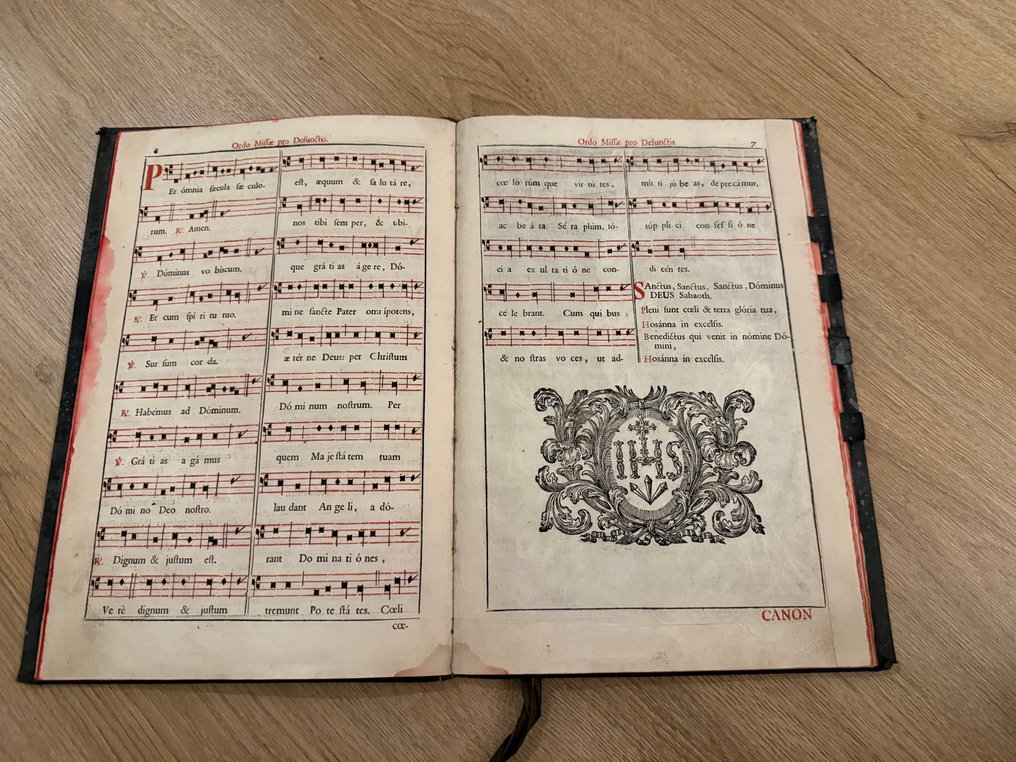 6
Ordo Missæ pro Defunctis.
PEr ómnia sæcula sæ culo-
rum. ℟. Amen.
℣. Dóminus vo biscum.
℟. Et cum spí ri tu tuo.
℣. Sur sum cor da.
℟. Habémus ad Dóminum.
℣. Grá ti as a gá mus
Dó mi no Deo nostro.
℟. Dignum & justum est.
Ve rè dignum & justum
est, æquum & sa lu tá re,
nos tibi sem per, & ubi-
que grá ti as á ge re, Dó-
mi ne sancte Pater omnípotens,
æ tér ne Deus: per Christum
Dó mi num nostrum. Per
quem Ma je stá tem tuam
lau dant An ge li, a dó-
rant Do mi na ti ó nes,
tremunt Po te stá tes. Cœli
cœ-
Ordo Missæ pro Defunctis.
7
cœ ló rúm que vir tú tes,
ac be á ta Sé ra phim, só-
ci a ex ul ta ti ó ne con-
cé le brant. Cum qui bus
& no stras vo ces, ut ad-
mit ti jú be as, de pre cá mur,
súp pli ci con fes si ó ne
di cén tes.
SAnctus, Sanctus, Sanctus, Dóminus
DEUS Sabaoth.
Pleni sunt cœli & terra glória tua,
Hosánna in excélsis.
Benedíctus qui venit in nómine Dó-
mini,
Hosánna in excélsis.
IHS
CANON